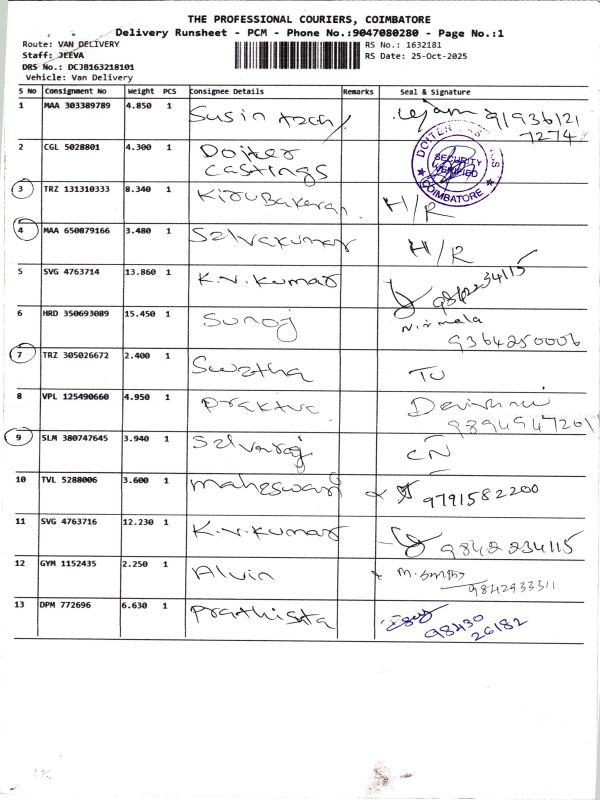 THE PROFESSIONAL COURIERS, COIMBATORE
Delivery Runsheet - PCM - Phone No.:9047080280 - Page No.:1
Route: VAN DELIVERY RS No.: 1632181
Staff: JEEVA RS Date: 25-Oct-2025
DRS No.: DCJB163218101
Vehicle: Van Delivery
S No Consignment No Weight PCS Consignee Details Remarks Seal & Signature
1 MAA 303389789 4.850 1 Susin 91936121
7274
2 CGL 5028801 4.300 1 Doiter
castings
DOITER SECURITY VERIFIED COIMBATORE
3 TRZ 131310333 8.340 1 Kirubakaran H/R
4 MAA 650879166 3.480 1 Selvakumar H/R
5 SVG 4763714 13.860 1 K.V.Kumar 9842234115
6 HRD 350693089 15.450 1 Suroj Nirmala
9364250006
7 TRZ 305026672 2.400 1 Swetha TO
8 VPL 125490660 4.950 1
9894947201
9 SLM 380747645 3.940 1 Selvaraj CN
10 TVL 5288006 3.600 1 Maheswari 9791582200
11 SVG 4763716 12.230 1 K.V.Kumar 9842234115
12 GYM 1152435 2.250 1 Alvin
9842933311
13 DPM 772696 6.630 1 Prathista
98430
26182